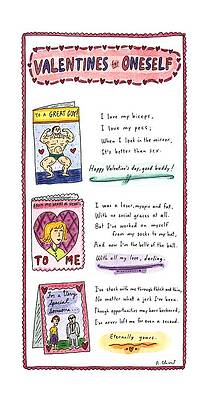 VALENTINES to ONESELF
TO A GREAT GUY!
I love my biceps,
I love my pecs;
When I look in the mirror,
It's better than sex.
Happy Valentine's day, good buddy!
TO ME
I was a loser, myopic and fat,
With no social graces at all.
But I've worked on myself
from my socks to my hat,
And now I'm the belle of the ball.
With all my love, darling.
To a Very
Special
Someone...
I've stuck with me through thick and thin,
No matter what a jerk I've been.
Though opportunities may have beckoned,
I've never left me for even a second.
Eternally yours.
R. Chast